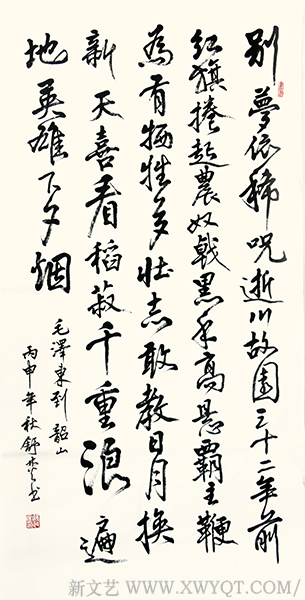 别梦依稀咒逝川故园三十二年前
红旗捲起農奴戟黑手高悬霸主鞭
為有牺牲多壮志敢教日月换
新天喜看稻菽千重浪遍
地英雄下夕烟
毛澤東到韶山
丙申年秋舒
新文艺 WWW.XWYQT.COM/